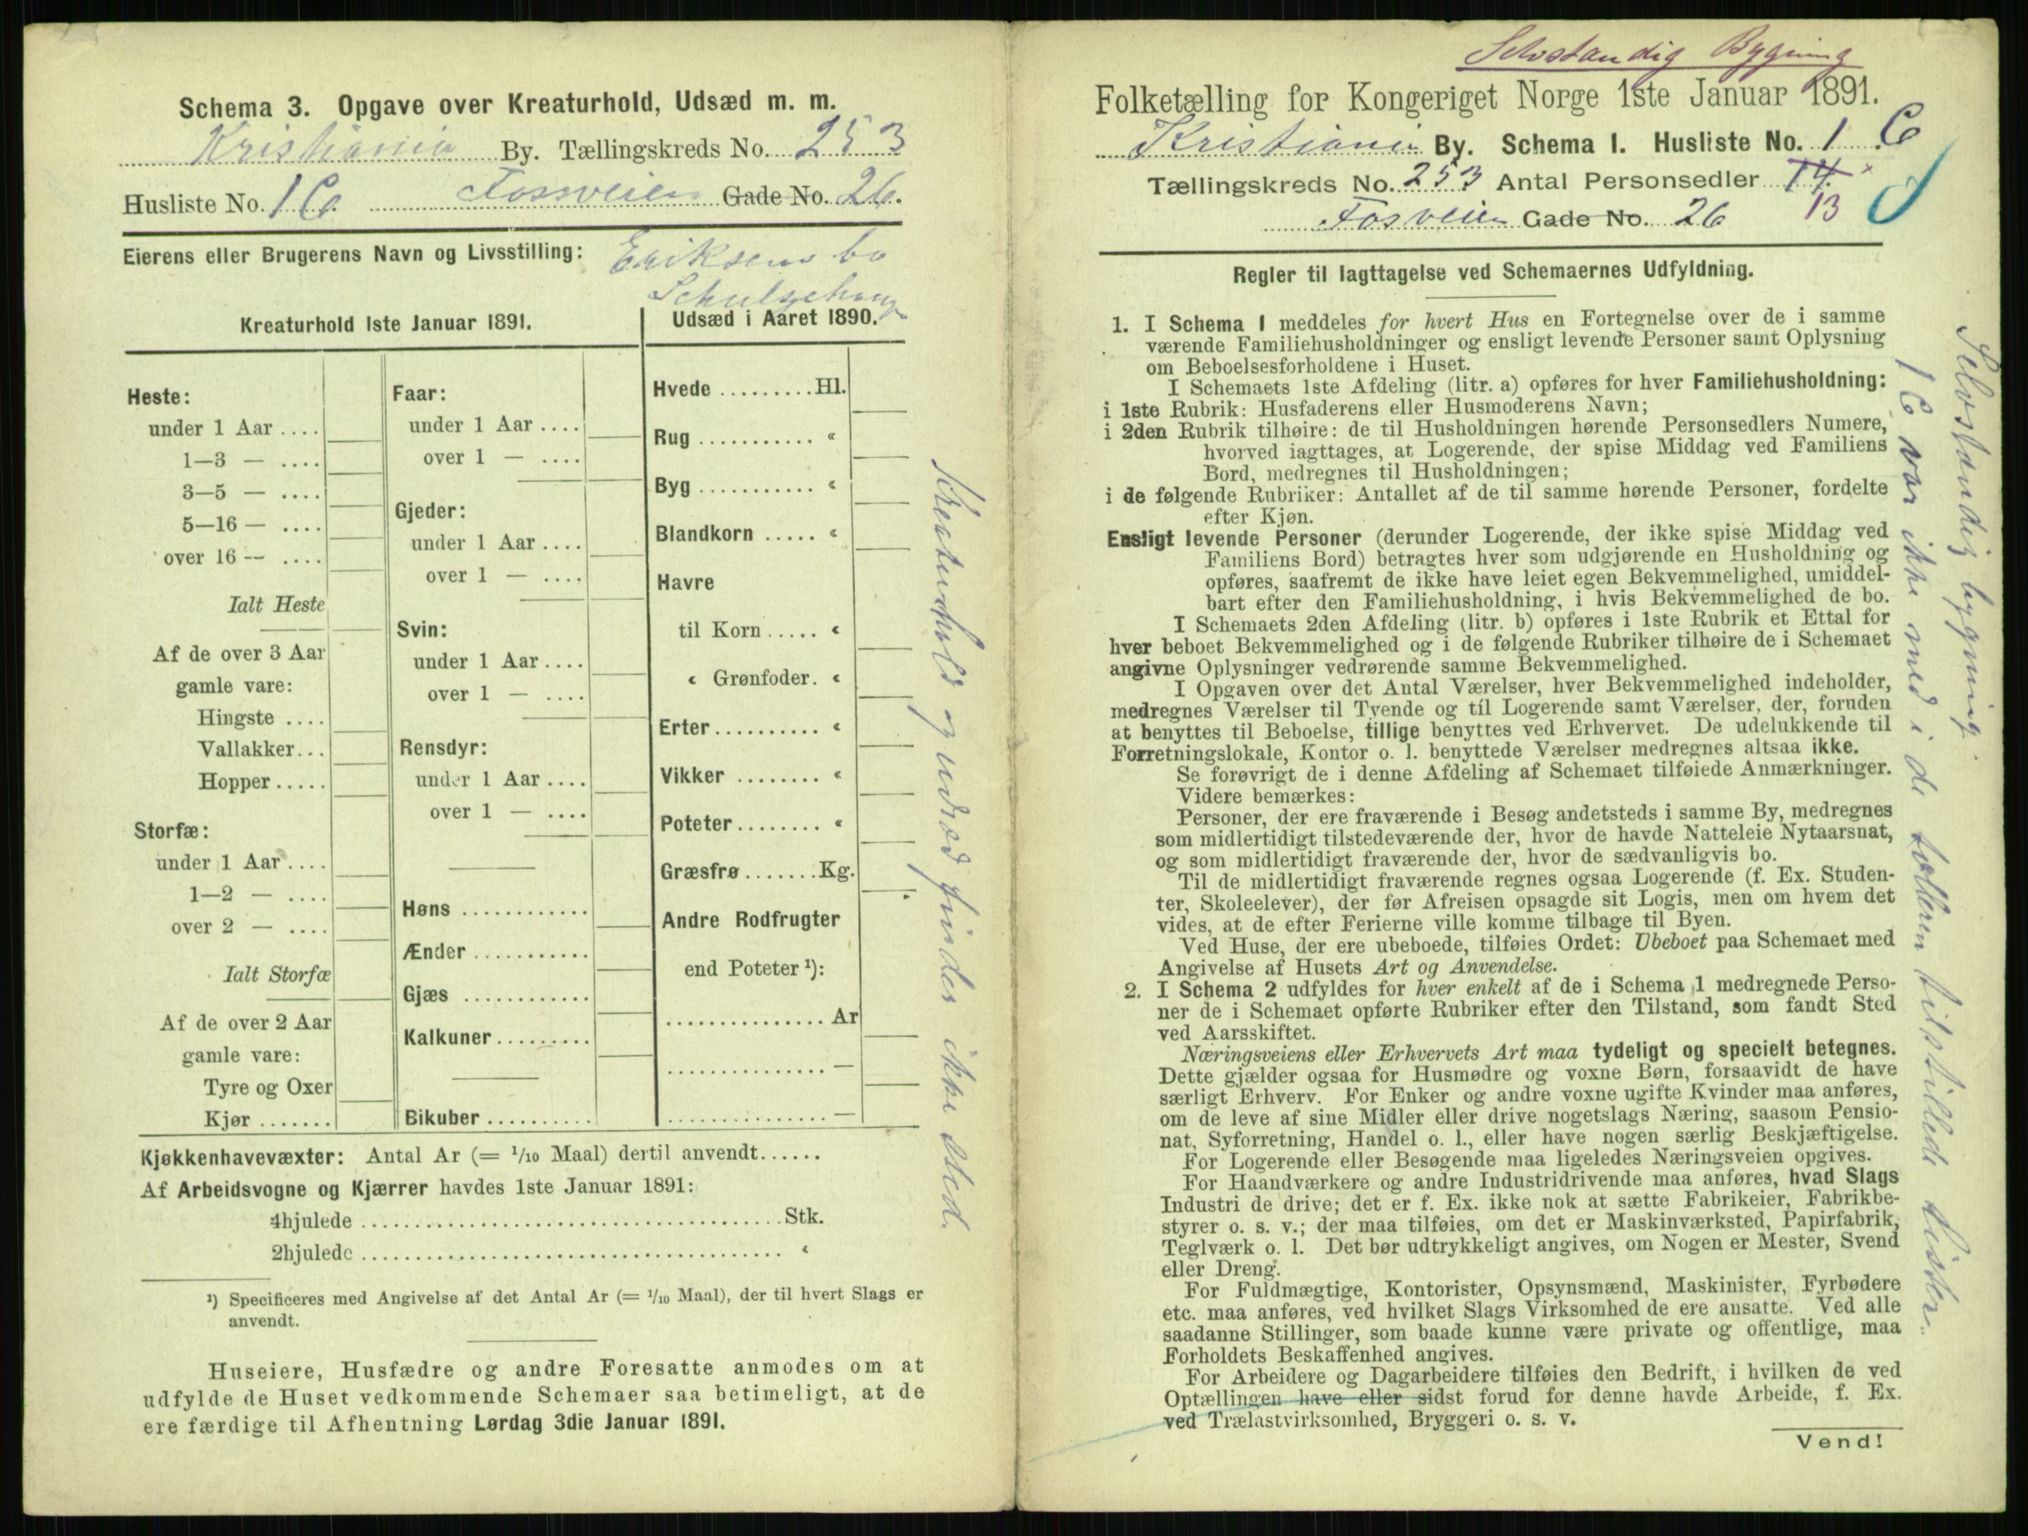 Schema 3. Opgave over Kreaturhold, Udsæd m. m.
Kristiania By. Tællingskreds No. 253
Husliste No. 1C Fossveien Gade No. 26.
Eierens eller Brugerens Navn og Livsstilling: Eriksens bo
Schulzehaug
Kreaturhold 1ste Januar 1891.
Heste:
under 1 Aar ....
1—3 — ....
3—5 — ....
5—16 — ....
over 16 — ....
Ialt Heste
Af de over 3 Aar
gamle vare:
Hingste ....
Vallakker...
Hopper.....
Storfæ:
under 1 Aar ....
1—2 — ....
over 2 — ....
Ialt Storfæ
Af de over 2 Aar
gamle vare:
Tyre og Oxer
Kjør .......
Faar:
under 1 Aar ....
over 1 — ....
Gjeder:
under 1 Aar ....
over 1 — ....
Svin:
under 1 Aar ....
over 1 — ....
Rensdyr:
under 1 Aar ....
over 1 — ....
Høns ............
Ænder ...........
Gjæs ............
Kalkuner.........
Bikuber ..........
Udsæd i Aaret 1890.
Hvede .........Hl.
Rug ........... «
Byg ........... «
Blandkorn ..... «
Havre
til Korn ..... «
« Grønfoder. «
Erter.......... «
Vikker ........ «
Poteter........ «
Græsfrø.......Kg.
Andre Rodfrugter
end Poteter ¹):
............... Ar
............... —
............... —
Kjøkkenhavevæxter: Antal Ar (= 1/10 Maal) dertil anvendt......
Af Arbeidsvogne og Kjærrer havdes 1ste Januar 1891:
4hjulede ........................................Stk.
2hjulede ........................................ «
¹) Specificeres med Angivelse af det Antal Ar (= 1/10 Maal), der til hvert Slags er
anvendt.
Huseiere, Husfædre og andre Foresatte anmodes om at
udfylde de Huset vedkommende Schemaer saa betimeligt, at de
ere færdige til Afhentning Lørdag 3die Januar 1891.
Kreaturhold og udsæd finder ikke sted.
Selvstændig Bygning
Folketælling for Kongeriget Norge 1ste Januar 1891.
Kristiania By. Schema I. Husliste No. 1 C
Tællingskreds No. 253 Antal Personsedler 14
Fosveien Gade No. 26 13
Regler til Iagttagelse ved Schemaernes Udfyldning.
1. I Schema 1 meddeles for hvert Hus en Fortegnelse over de i samme
værende Familiehusholdninger og ensligt levende Personer samt Oplysning
om Beboelsesforholdene i Huset.
I Schemaets 1ste Afdeling (litr. a) opføres for hver Familiehusholdning:
i 1ste Rubrik: Husfaderens eller Husmoderens Navn;
i 2den Rubrik tilhøire: de til Husholdningen hørende Personsedlers Numere,
hvorved iagttages, at Logerende, der spise Middag ved Familiens
Bord, medregnes til Husholdningen;
i de følgende Rubriker: Antallet af de til samme hørende Personer, fordelte
efter Kjøn.
Ensligt levende Personer (derunder Logerende, der ikke spise Middag ved
Familiens Bord) betragtes hver som udgjørende en Husholdning og
opføres, saafremt de ikke have leiet egen Bekvemmelighed, umiddel-
bart efter den Familiehusholdning, i hvis Bekvemmelighed de bo.
I Schemaets 2den Afdeling (litr. b) opføres i 1ste Rubrik et Ettal for
hver beboet Bekvemmelighed og i de følgende Rubriker tilhøire de i Schemaet
angivne Oplysninger vedrørende samme Bekvemmelighed.
I Opgaven over det Antal Værelser, hver Bekvemmelighed indeholder,
medregnes Værelser til Tyende og til Logerende samt Værelser, der, foruden
at benyttes til Beboelse, tillige benyttes ved Erhvervet. De udelukkende til
Forretningslokale, Kontor o. l. benyttede Værelser medregnes altsaa ikke.
Se forøvrigt de i denne Afdeling af Schemaet tilføiede Anmærkninger.
Videre bemærkes:
Personer, der ere fraværende i Besøg andetsteds i samme By, medregnes
som midlertidigt tilstedeværende der, hvor de havde Natteleie Nytaarsnat,
og som midlertidigt fraværende der, hvor de sædvanligvis bo.
Til de midlertidigt fraværende regnes ogsaa Logerende (f. Ex. Studen-
ter, Skoleelever), der før Afreisen opsagde sit Logis, men om hvem det
vides, at de efter Ferierne ville komme tilbage til Byen.
Ved Huse, der ere ubeboede, tilføies Ordet: Ubeboet paa Schemaet med
Angivelse af Husets Art og Anvendelse.
2. I Schema 2 udfyldes for hver enkelt af de i Schema 1 medregnede Perso-
ner de i Schemaet opførte Rubriker efter den Tilstand, som fandt Sted
ved Aarsskiftet.
Næringsveiens eller Erhvervets Art maa tydeligt og specielt betegnes.
Dette gjælder ogsaa for Husmødre og voxne Børn, forsaavidt de have
særligt Erhverv. For Enker og andre voxne ugifte Kvinder maa anføres,
om de leve af sine Midler eller drive nogetslags Næring, saasom Pensio-
nat, Syforretning, Handel o. l., eller have nogen særlig Beskjæftigelse.
For Logerende eller Besøgende maa ligeledes Næringsveien opgives.
For Haandværkere og andre Industridrivende maa anføres, hvad Slags
Industri de drive; det er f. Ex. ikke nok at sætte Fabrikeier, Fabrikbe-
styrer o. s. v.; der maa tilføies, om det er Maskinværksted, Papirfabrik,
Teglværk o. l. Det bør udtrykkeligt angives, om Nogen er Mester, Svend
eller Dreng.
For Fuldmægtige, Kontorister, Opsynsmænd, Maskinister, Fyrbødere
etc. maa anføres, ved hvilket Slags Virksomhed de ere ansatte. Ved alle
saadanne Stillinger, som baade kunne være private og offentlige, maa
Forholdets Beskaffenhed angives.
For Arbeidere og Dagarbeidere tilføies den Bedrift, i hvilken de ved
Optællingen have eller sidst forud for denne havde Arbeide, f. Ex.
ved Trælastvirksomhed, Bryggeri o. s. v.
Vend!
Selvstændig bygning.
1 C var ikke med i de tælleren tilstillede lister.